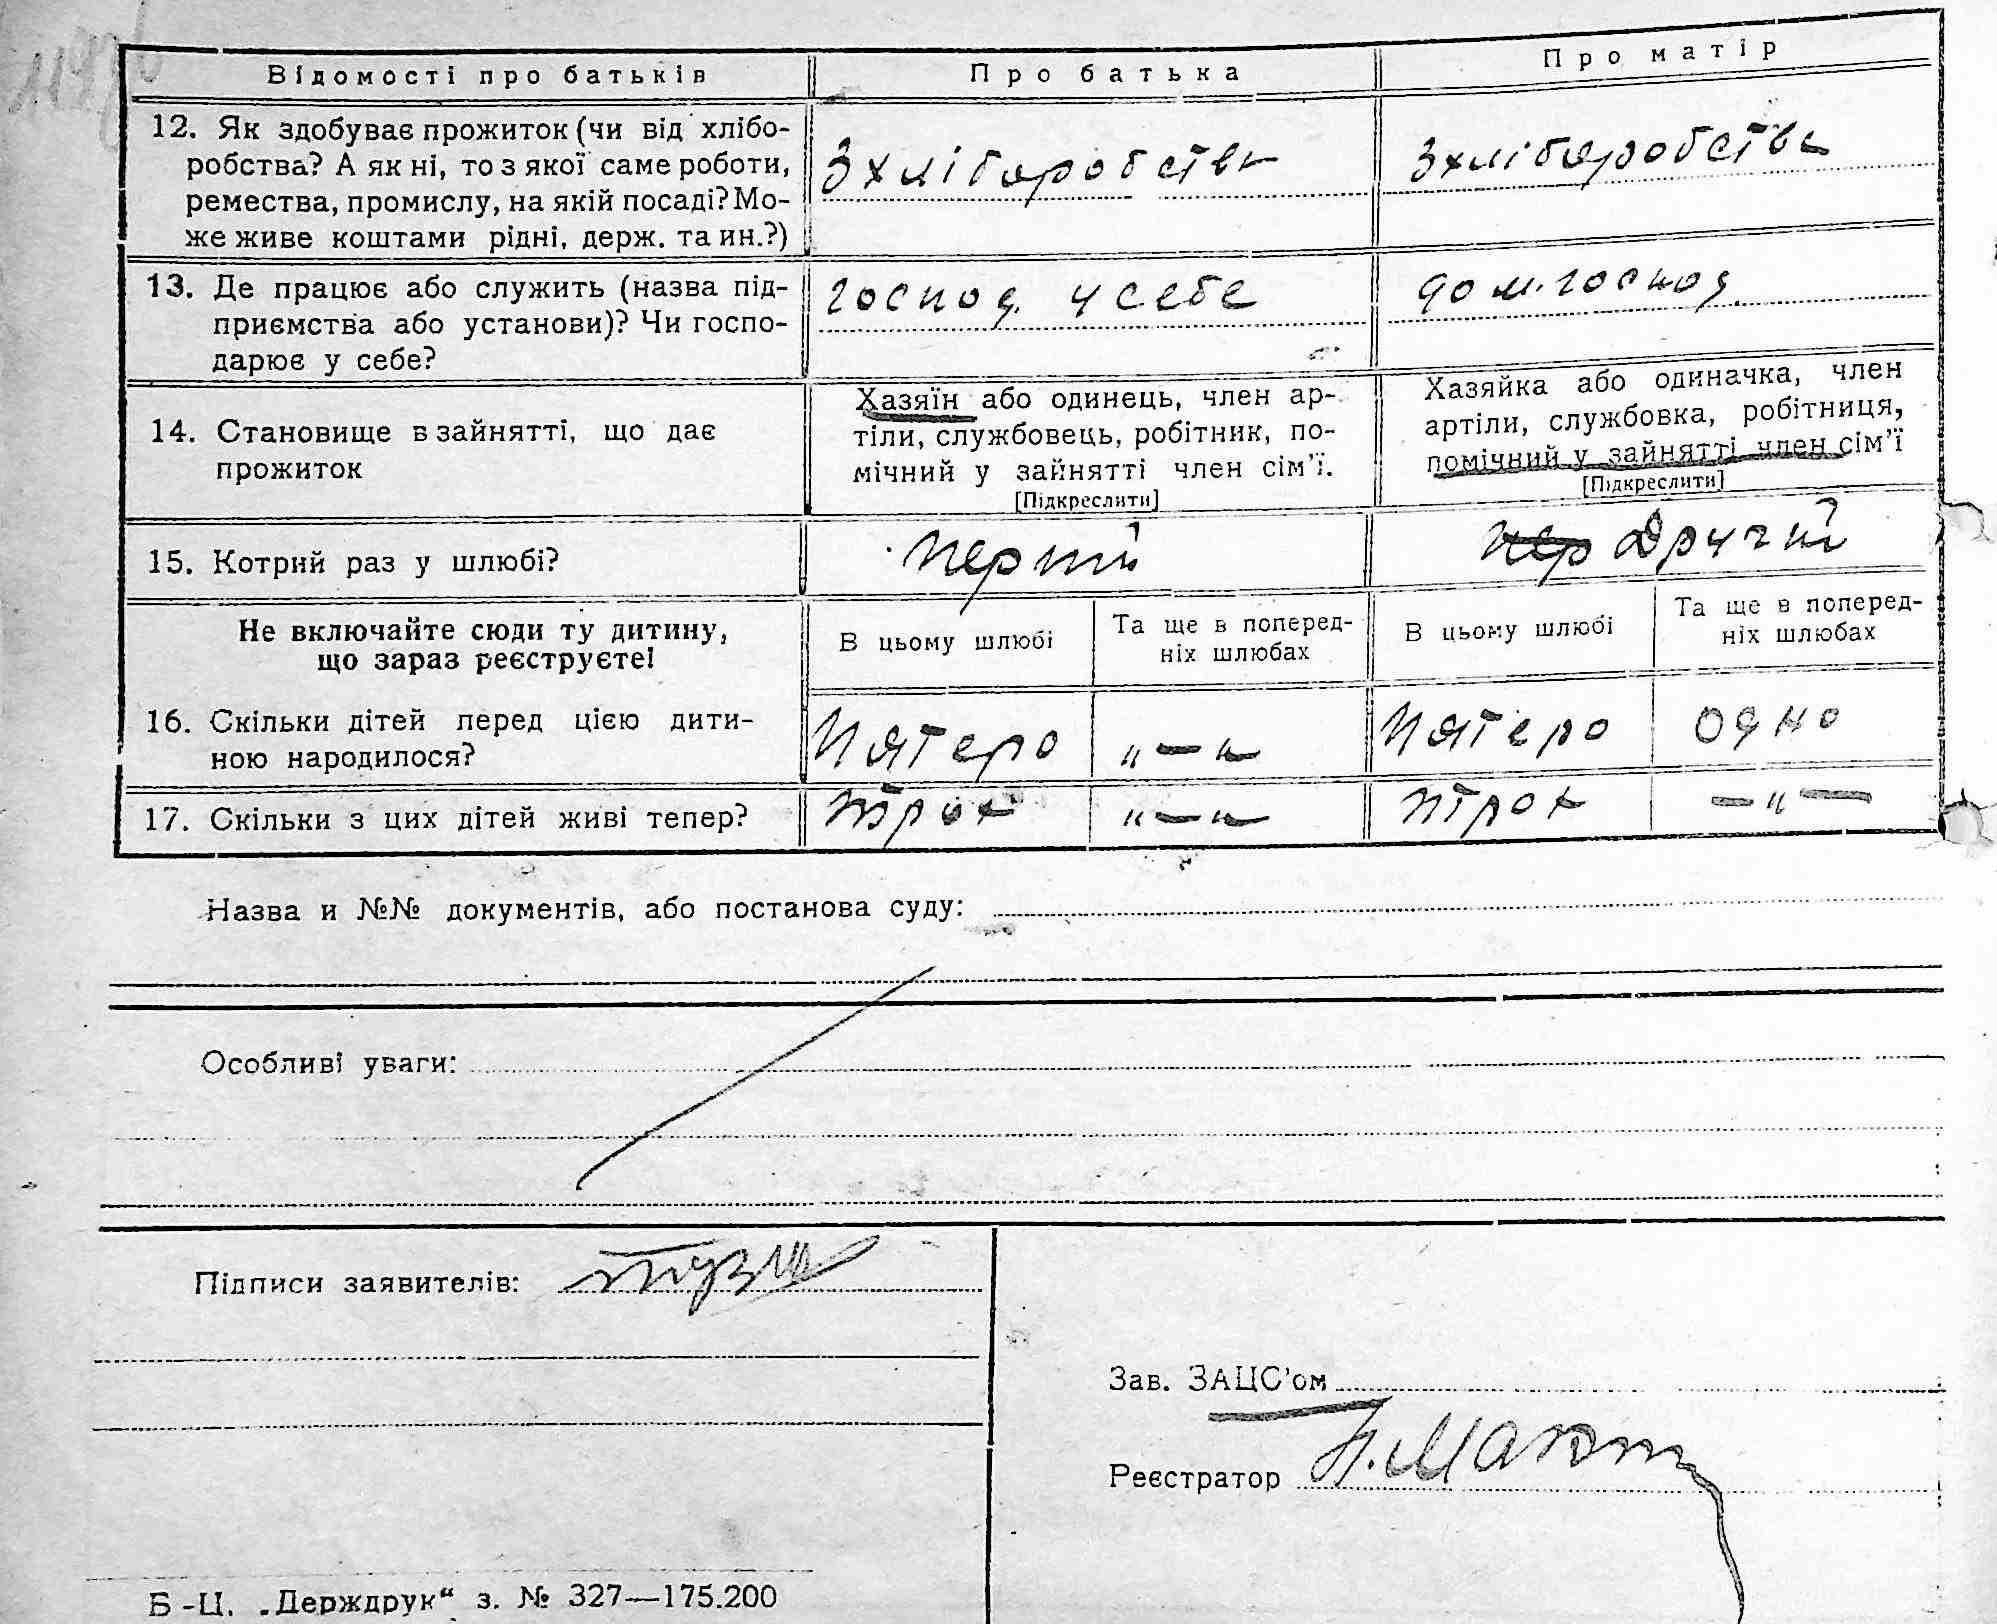 Відомості про батьків Про батька Про матір
12. Як здобуває прожиток (чи від хлібо-
робства? А як ні, то з якої саме роботи,
ремества, промислу, на якій посаді? Мо-
же живе коштами рідні, держ. та ин.?)
З хліборобства З хліборобства
13. Де працює або служить (назва під-
приємства або установи)? Чи госпо-
дарює у себе?
господ. у себе дом. господ.
14. Становище в зайнятті, що дає
прожиток
Хазяїн або одинець, член ар-
тіли, службовець, робітник, по-
мічний у зайнятті член сім'ї.
[Підкреслити]
Хазяйка або одиначка, член
артіли, службовка, робітниця,
помічний у зайнятті член сім'ї
[Підкреслити]
15. Котрий раз у шлюбі? Перший пер Другий
Не включайте сюди ту дитину,
що зараз реєструєте!
В цьому шлюбі
Та ще в поперед-
ніх шлюбах
В цьому шлюбі
Та ще в поперед-
ніх шлюбах
16. Скільки дітей перед цією дити-
ною народилося?
Пятеро „—„ Пятеро одно
17. Скільки з цих дітей живі тепер? трох „—„ трох —„—
Назва и №№ документів, або постанова суду:
Особливі уваги:
Підписи заявителів:
Зав. ЗАЦС'ом
Реєстратор
Б-Ц. „Держдрук“ з. № 327—175.200